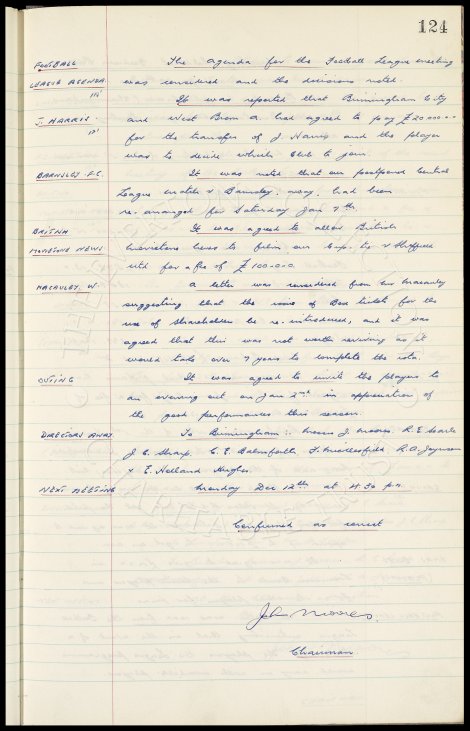 124
FOOTBALL The agenda for the Football League meeting
LEAGUE AGENDA. was considered and the decisions noted.
It was reported that Birmingham City
J. HARRIS. and West Brom A. had agreed to pay £20,000-0-0
for the transfer of J. Harris and the player
was to decide which Club to join.
BARNSLEY. F.C. It was noted that our postponed Central
League match v Barnsley, away, had been
re-arranged for Saturday Jan 7th.
BRITISH It was agreed to allow British
MOVIETONE NEWS Movietone News to film our Cup tie v Sheffield
Utd for a fee of £100-0-0.
MACAULEY. W. A letter was considered from Mr Macauley
suggesting that the issue of Box tickets for the
use of Shareholders be re-introduced, and it was
agreed that this was not worth reviving as it
would take over 7 years to complete the rota.
OUTING It was agreed to invite the players to
an evening out on Jan 2nd in appreciation of
the good performances this season.
DIRECTORS AWAY. To Birmingham:- Messrs J. Moores. R.E. Searle
J.C. Sharp. C.E. Balmforth, F. Micklesfield R.A. Joynson
& E. Holland Hughes.
NEXT MEETING Monday Dec 12th at 4.30 p.m.
Confirmed as correct
Moores.
Chairman